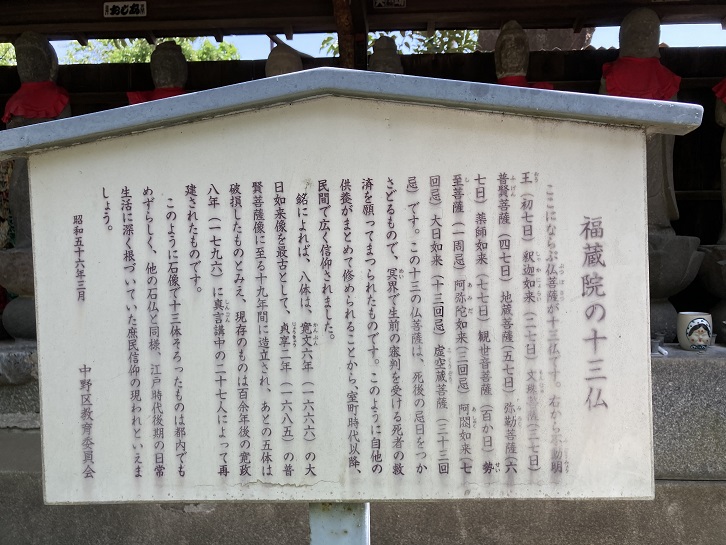 福蔵院の十三仏
ここにならぶ仏菩薩が十三仏です。右から不動明
王（初七日）釈迦如来（二七日）文殊菩薩（三七日）
普賢菩薩（四七日）地蔵菩薩（五七日）弥勒菩薩（六
七日）薬師如来（七七日）観世音菩薩（百か日）勢
至菩薩（一周忌）阿弥陀如来（三回忌）阿閦如来（七
回忌）大日如来（十三回忌）虚空蔵菩薩（三十三回
忌）です。この十三の仏菩薩は、死後の忌日をつか
さどるもので、冥界で生前の審判を受ける死者の救
済を願ってまつられたものです。このように自他の
供養がまとめて修められることから、室町時代以降、
民間で広く信仰されました。
銘によれば、八体は、寛文六年（一六六六）の大
日如来像を最古として、貞享二年（一六八五）の普
賢菩薩像に至る十九年間に造立され、あとの五体は
破損したものとみえ、現存のものは百余年後の寛政
八年（一七九六）に真言講中の二十七人によって再
建されたものです。
このように石像で十三体そろったものは都内でも
めずらしく、他の石仏と同様、江戸時代後期の日常
生活に深く根づいていた庶民信仰の現われといえま
しょう。
昭和五十六年三月
中野区教育委員会